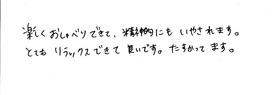 楽しくおしゃべりできて、精神的にもいやされます。
とてもリラックスできて良いです。たすかってます。